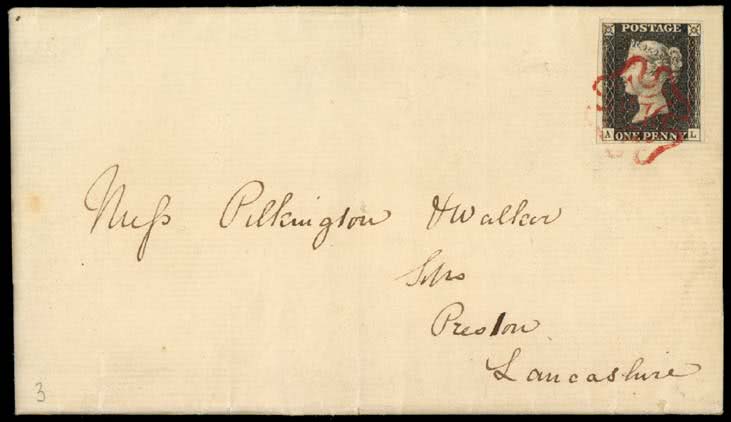 POSTAGE
A ONE PENNY L
Messs Pilkington & Walker
Solrs
Preston
Lancashire
3